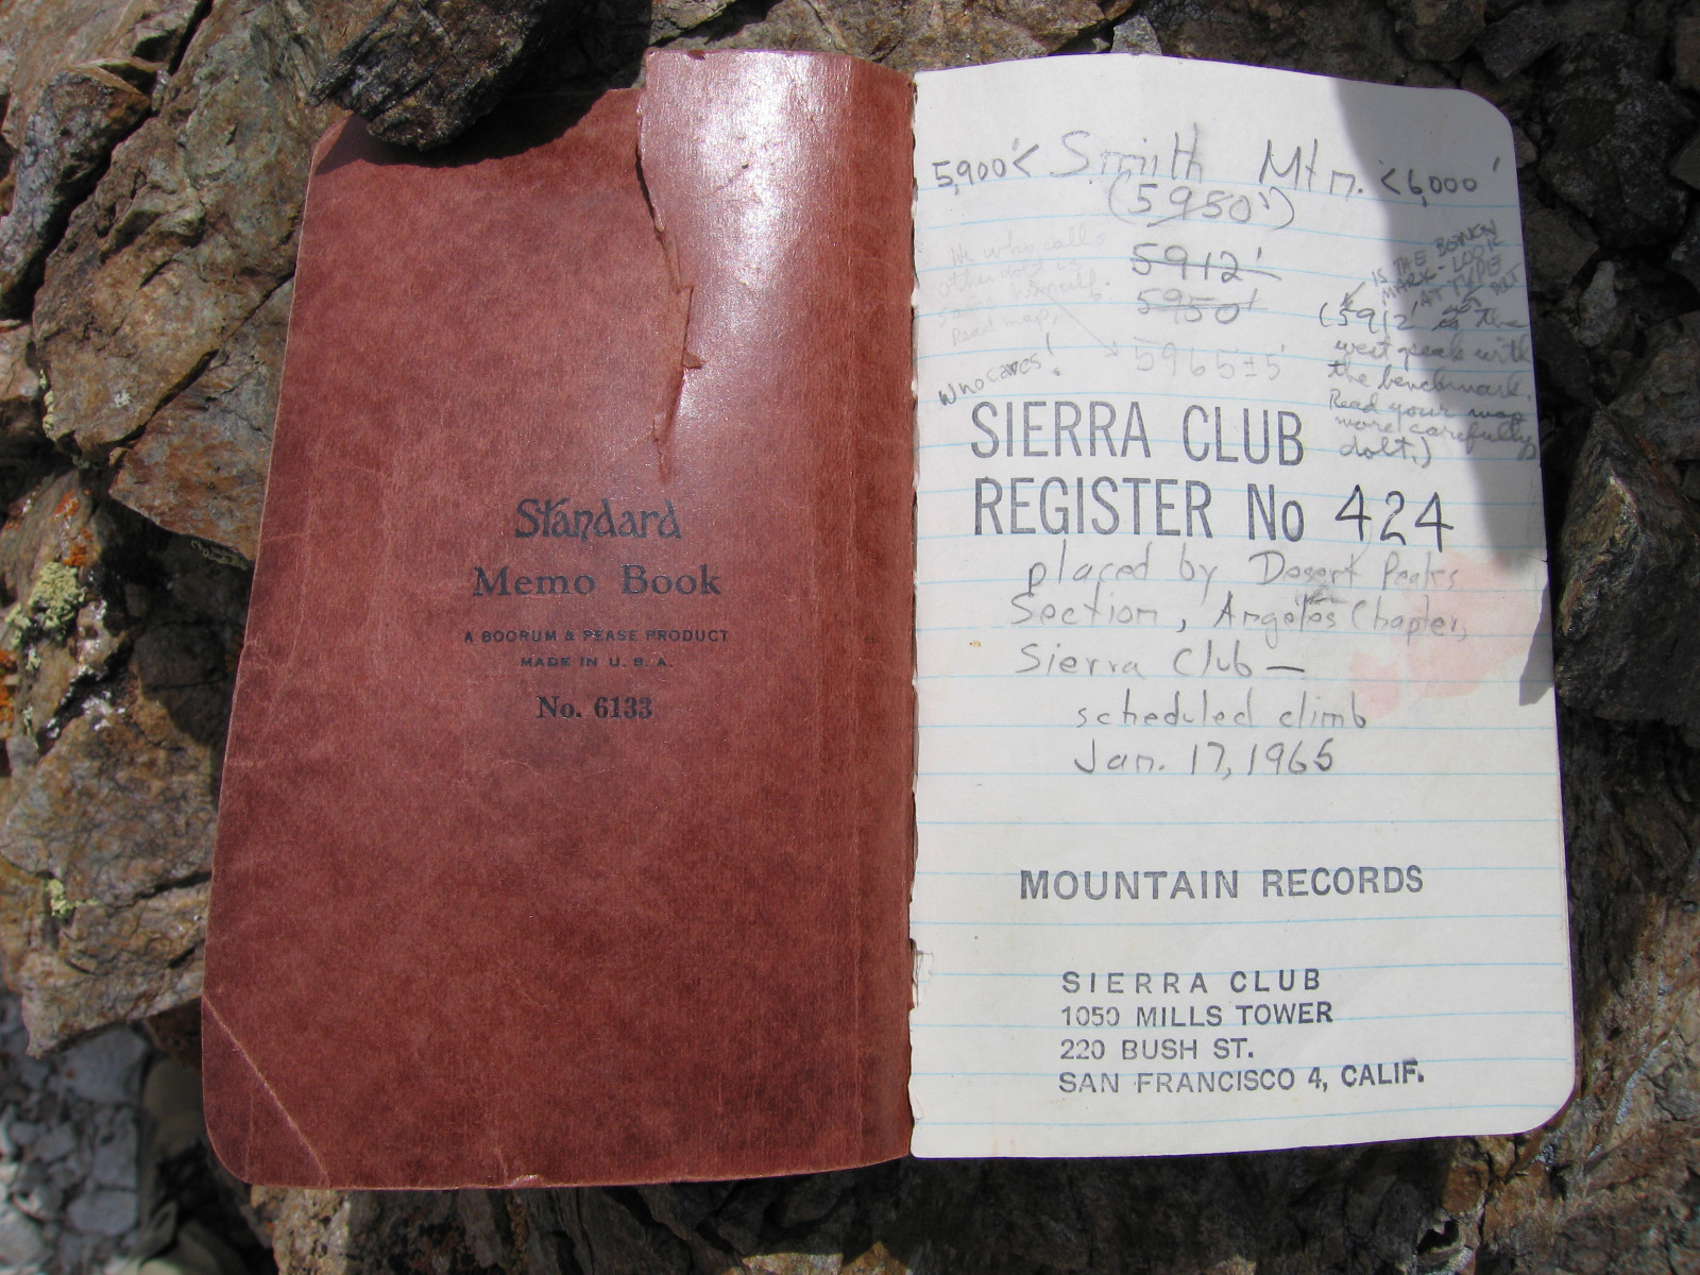 Standard
Memo Book
A BOORUM & PEASE PRODUCT
MADE IN U. S. A.
No. 6133
5,900'< Smith Mtn. <6,000'
(5950')
5912'
5950'
5965±5'
He who calls
other dolts is
himself.
Read map,
Who cares!
IS THE
MARK - LOOK
AT
(5912' is the
west peak with
the benchmark.
Read your map
more carefully
dolt.)
SIERRA CLUB
REGISTER No 424
placed by Desert Peaks
Section, Angeles Chapter,
Sierra Club —
scheduled climb
Jan. 17, 1965
MOUNTAIN RECORDS
SIERRA CLUB
1050 MILLS TOWER
220 BUSH ST.
SAN FRANCISCO 4, CALIF.